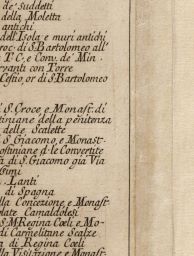 de' Suddetti
della Moletta
antichi
dell'Isola e muri antichi
roc. di S. Bartolomeo all'
e T. C. e Conv. de' Min.
rvanti con Torre
Cestio, or di S. Bartolomeo
di S. Croce e Monast. di
stiniane della penitenza
delle Scalette
S. Giacomo, e Monast
ostiniane d. le Convertite
a di S. Giacomo gia Via
Gimi
Lanti
di Spagna
lla Concezione e Monast
late Camaldolesi
S. M. Regina Cœli e Mo-
di Carmelitane Scalze
a di Regina Cœli
lla Visitazione e Monast